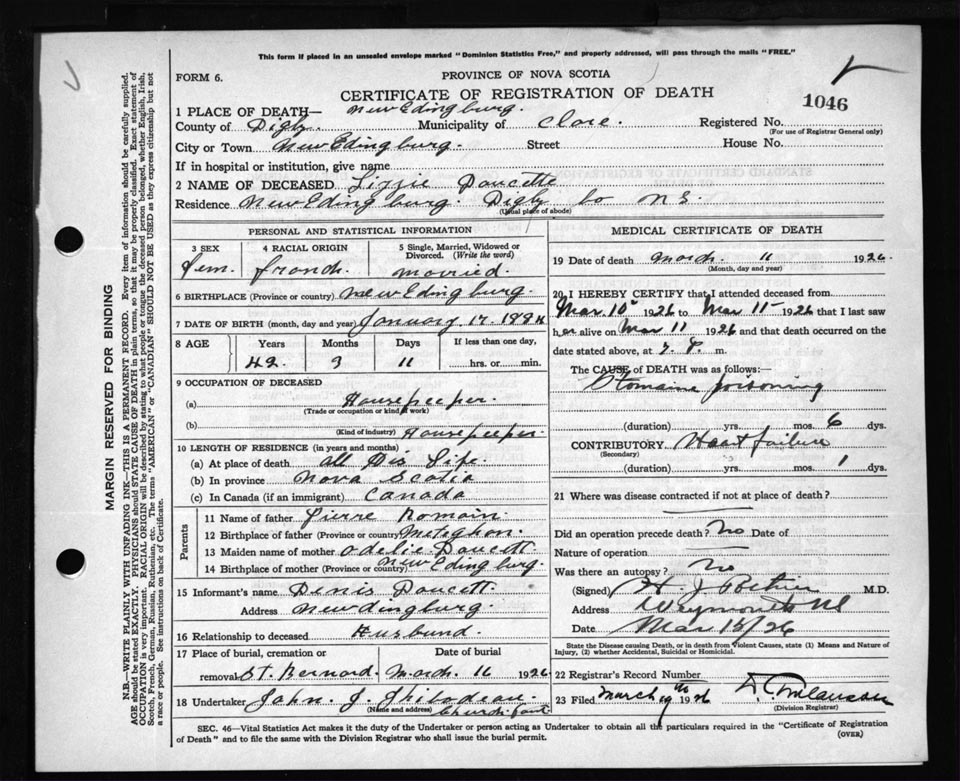 This form if placed in an unsealed envelope marked "Dominion Statistics Free," and properly addressed, will pass through the mails "FREE."
FORM 6.
PROVINCE OF NOVA SCOTIA
CERTIFICATE OF REGISTRATION OF DEATH
1046
1 PLACE OF DEATH— New Edingburg.
County of Digby. Municipality of Clare. Registered No.
(For use of Registrar General only)
City or Town New Edingburg. Street House No.
If in hospital or institution, give name
2 NAME OF DECEASED Lizzie Doucette
Residence New Edingburg. Digby Co N S.
(Usual place of abode)
PERSONAL AND STATISTICAL INFORMATION
3 SEX 4 RACIAL ORIGIN 5 Single, Married, Widowed or Divorced. (Write the word)
fem. french. married.
6 BIRTHPLACE (Province or country) New Edingburg.
7 DATE OF BIRTH (month, day and year) January 17. 1884
8 AGE Years Months Days If less than one day,
42. 3 11 hrs. or min.
9 OCCUPATION OF DECEASED
(a) Housekeeper.
(Trade or occupation or kind of work)
(b)
(Kind of industry) Housekeeper.
10 LENGTH OF RESIDENCE (in years and months)
(a) At place of death all Life.
(b) In province Nova Scotia
(c) In Canada (if an immigrant) Canada
Parents
11 Name of father Pierre Romain.
12 Birthplace of father (Province or country) Meteghan.
13 Maiden name of mother Odelie Doucett.
14 Birthplace of mother (Province or country) New Edingburg.
15 Informant's name Denis Doucett.
Address Newdingburg.
16 Relationship to deceased Husbund.
17 Place of burial, cremation or Date of burial
removal St. Bernard. March. 16 1926
18 Undertaker John. J. Thibodeau.
(Name and address) Church Point
MEDICAL CERTIFICATE OF DEATH
19 Date of death March. 11 1926.
(Month, day and year)
20 I HEREBY CERTIFY that I attended deceased from
Mar 10 1926 to Mar 11 1926 that I last saw
her alive on Mar 11 1926 and that death occurred on
date stated above, at 7 P. m.
The CAUSE of DEATH was as follows:—
Ptomaine poisoning
(duration) yrs. mos. 6 dys.
CONTRIBUTORY Heart failure
(Secondary)
(duration) yrs. mos. 1 dys.
21 Where was disease contracted if not at place of death?
Did an operation precede death? No Date of
Nature of operation
Was there an autopsy? No
(Signed) H J M.D.
Address Weymouth NS
Date Mar 15/26
State the Disease causing Death, or in death from Violent Causes, state (1) Means and Nature of Injury, (2) whether Accidental, Suicidal or Homicidal.
22 Registrar's Record Number
23 Filed March 19th 1926
(Division Registrar)
SEC. 46—Vital Statistics Act makes it the duty of the Undertaker or person acting as Undertaker to obtain all the particulars required in the "Certificate of Registration
of Death" and to file the same with the Division Registrar who shall issue the burial permit.
(OVER)
MARGIN RESERVED FOR BINDING
N.B.—WRITE PLAINLY WITH UNFADING INK—THIS IS A PERMANENT RECORD. Every item of information should be carefully supplied.
AGE should be stated EXACTLY. PHYSICIANS should STATE CAUSE OF DEATH in plain terms, so that it may be properly classified. Exact statement of
OCCUPATION is very important. RACIAL ORIGIN will be described by stating to what people or tongue the deceased person belonged, whether English, Irish,
Scotch, French, German, Russian, Ruthenian, etc. The terms "AMERICAN" or "CANADIAN" SHOULD NOT BE USED as they express citizenship but not
a race or people. See instructions on back of Certificate.